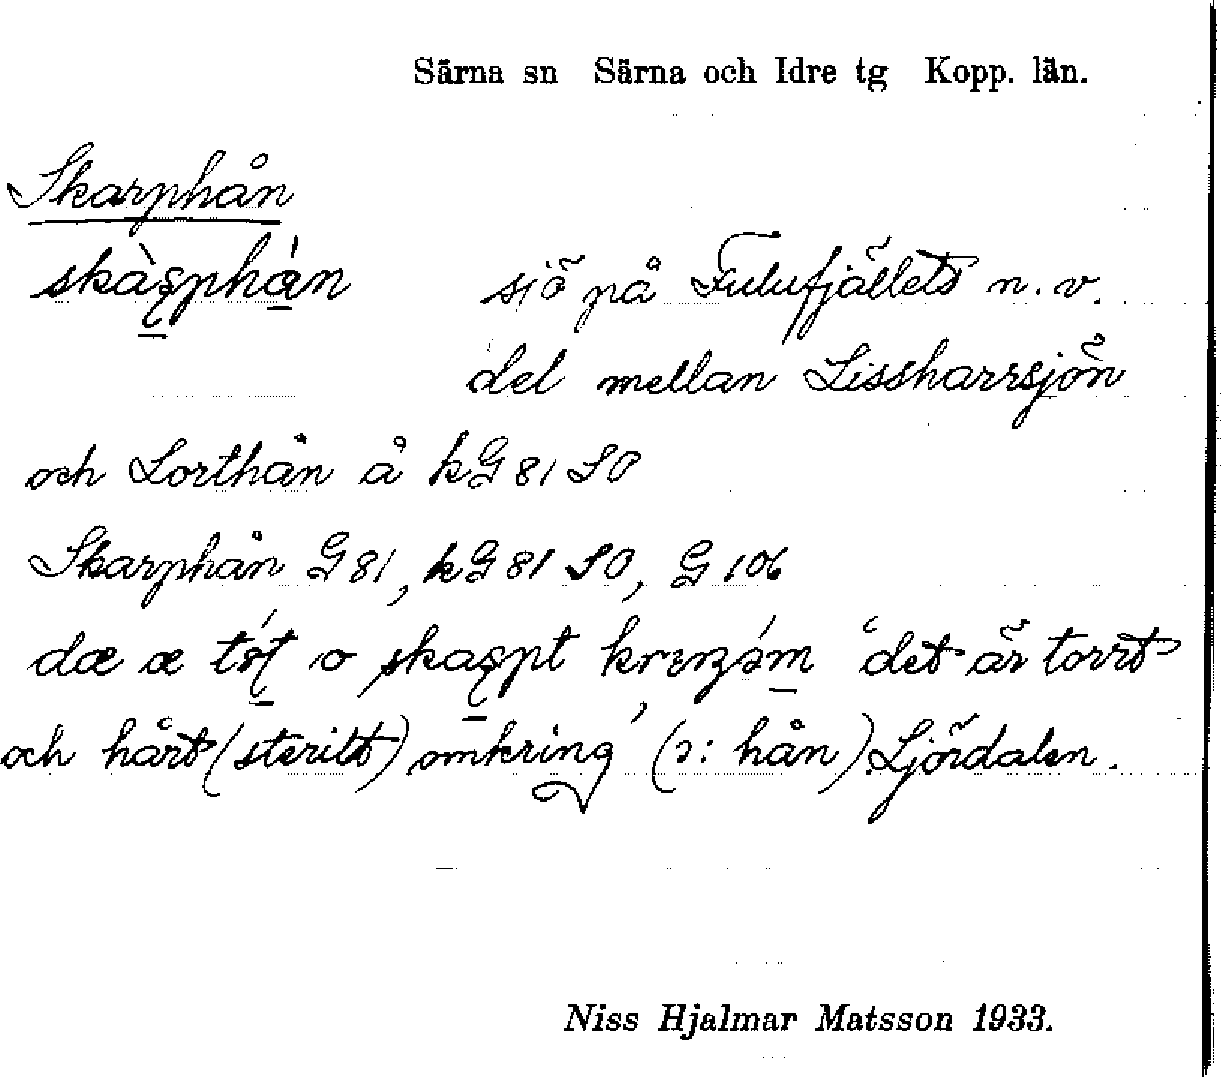 Särna sn Särna och Idre tg Kopp. län.
Skarphån
sjö på Fulufjällets n.v.
del mellan Lissharrsjön
och Lorthån å kG 81 SO
Skarphån G 81, kG 81 SO, G 106
dæ æ o 'det är torrt
och hårt (sterilt) omkring' (ɔ: hån). Ljördalen.
Niss Hjalmar Matsson 1933.